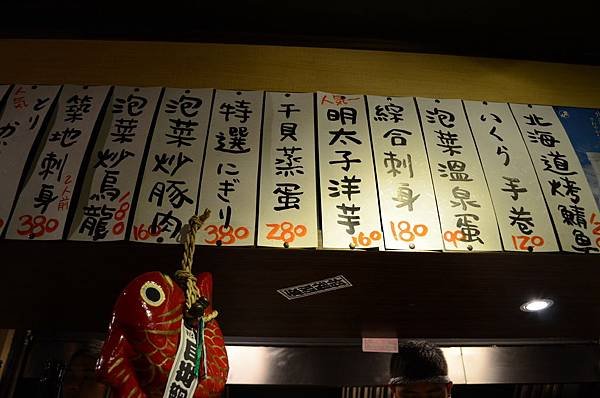 人気
とりかわ
築地刺身
2人前
380
泡菜炒烏龍
180
泡菜炒豚肉
160
特選にぎり
380
干貝蒸蛋
280
人気
明太子洋芋
160
綜合刺身
180
泡菜溫泉蛋
90
いくら手巻
120
北海道烤鯖魚